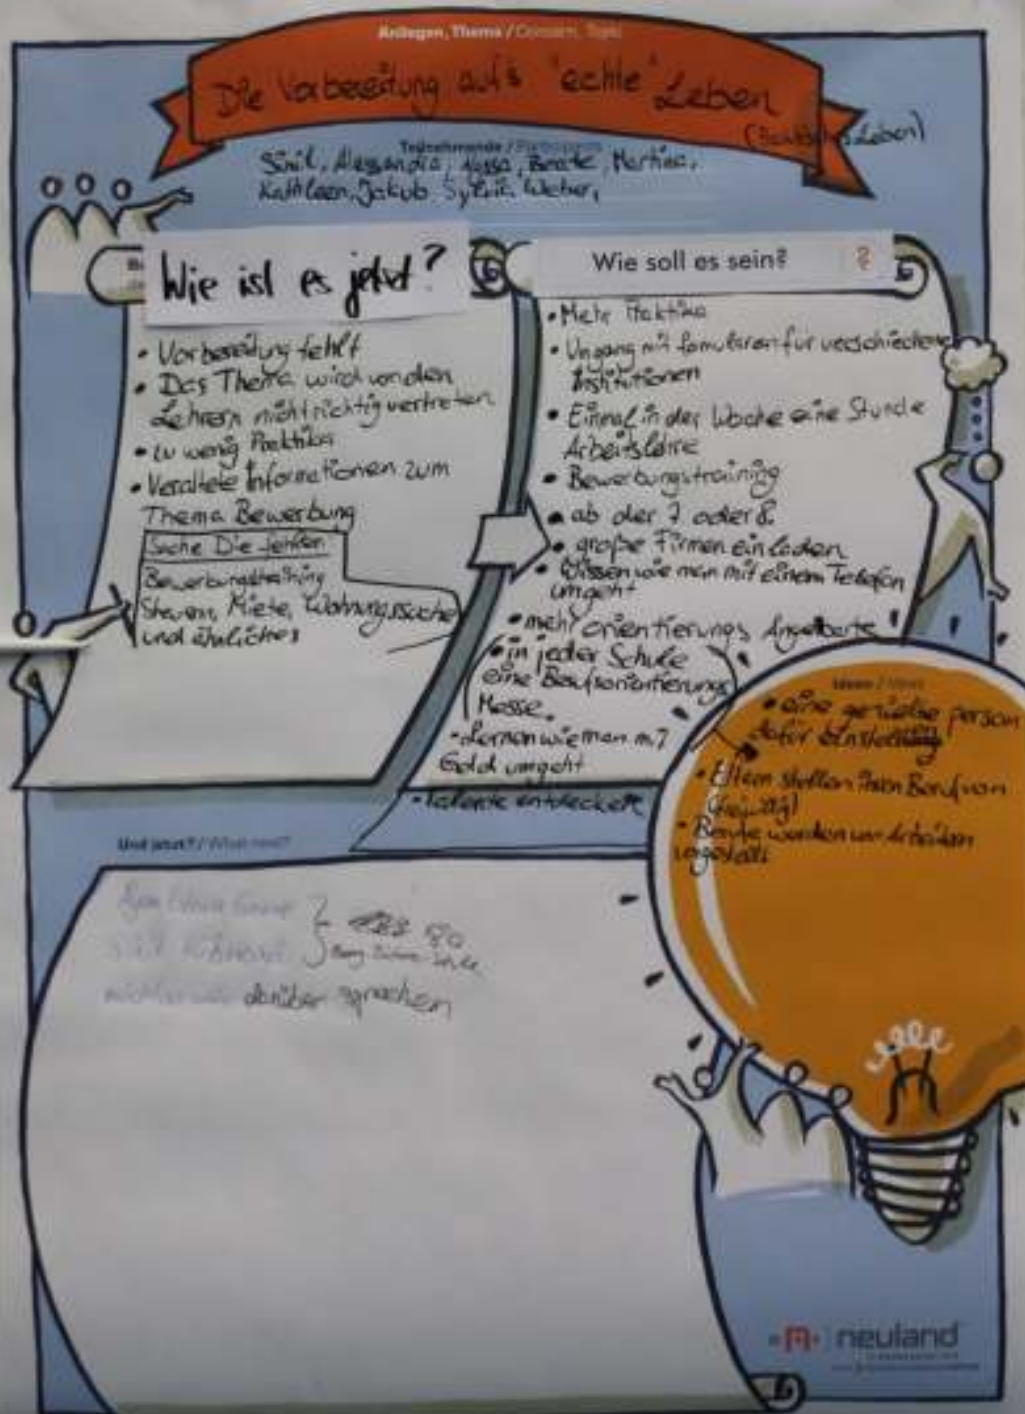 Anliegen, Thema / Concern, Topic
Die Vorbereitung auf's "echte" Leben
Leben)
Teilnehmende /
Sinit, Alessandra, Beate, Martina,
Kathleen, Jakub, Sylvia Weber,
Wie ist es jetzt?
Wie soll es sein?
?
• Vorbereitung fehlt
• Das Thema wird von den
Lehrern nicht richtig vertreten
• zu wenig Praktika
• Veraltete Informationen zum
Thema Bewerbung
Sache Die fehlen
Bewerbungstraining
Steuern, Miete, Wohnungssuche
und ähnliches
• Mehr Praktika
• Umgang mit Fomularen für verschiedene
Institutionen
• Einmal in der Woche eine Stunde
Arbeitslehre
• Bewerbungstraining
• ab der 7 oder 8.
• große Firmen einladen
• Wissen wie man mit einem Telefon
umgeht
• mehr orientierungs Angebote
• in jeder Schule
eine Berufsorientierungs
Messe.
• Lernen wie man m.
Geld umgeht
• Talente entdecken
Ideen /
• eine person
dafür
• Eltern stellen ihren Beruf vor
• Berufe werden von
vorgestellt
Und jetzt? / What next?
darüber sprechen
neuland